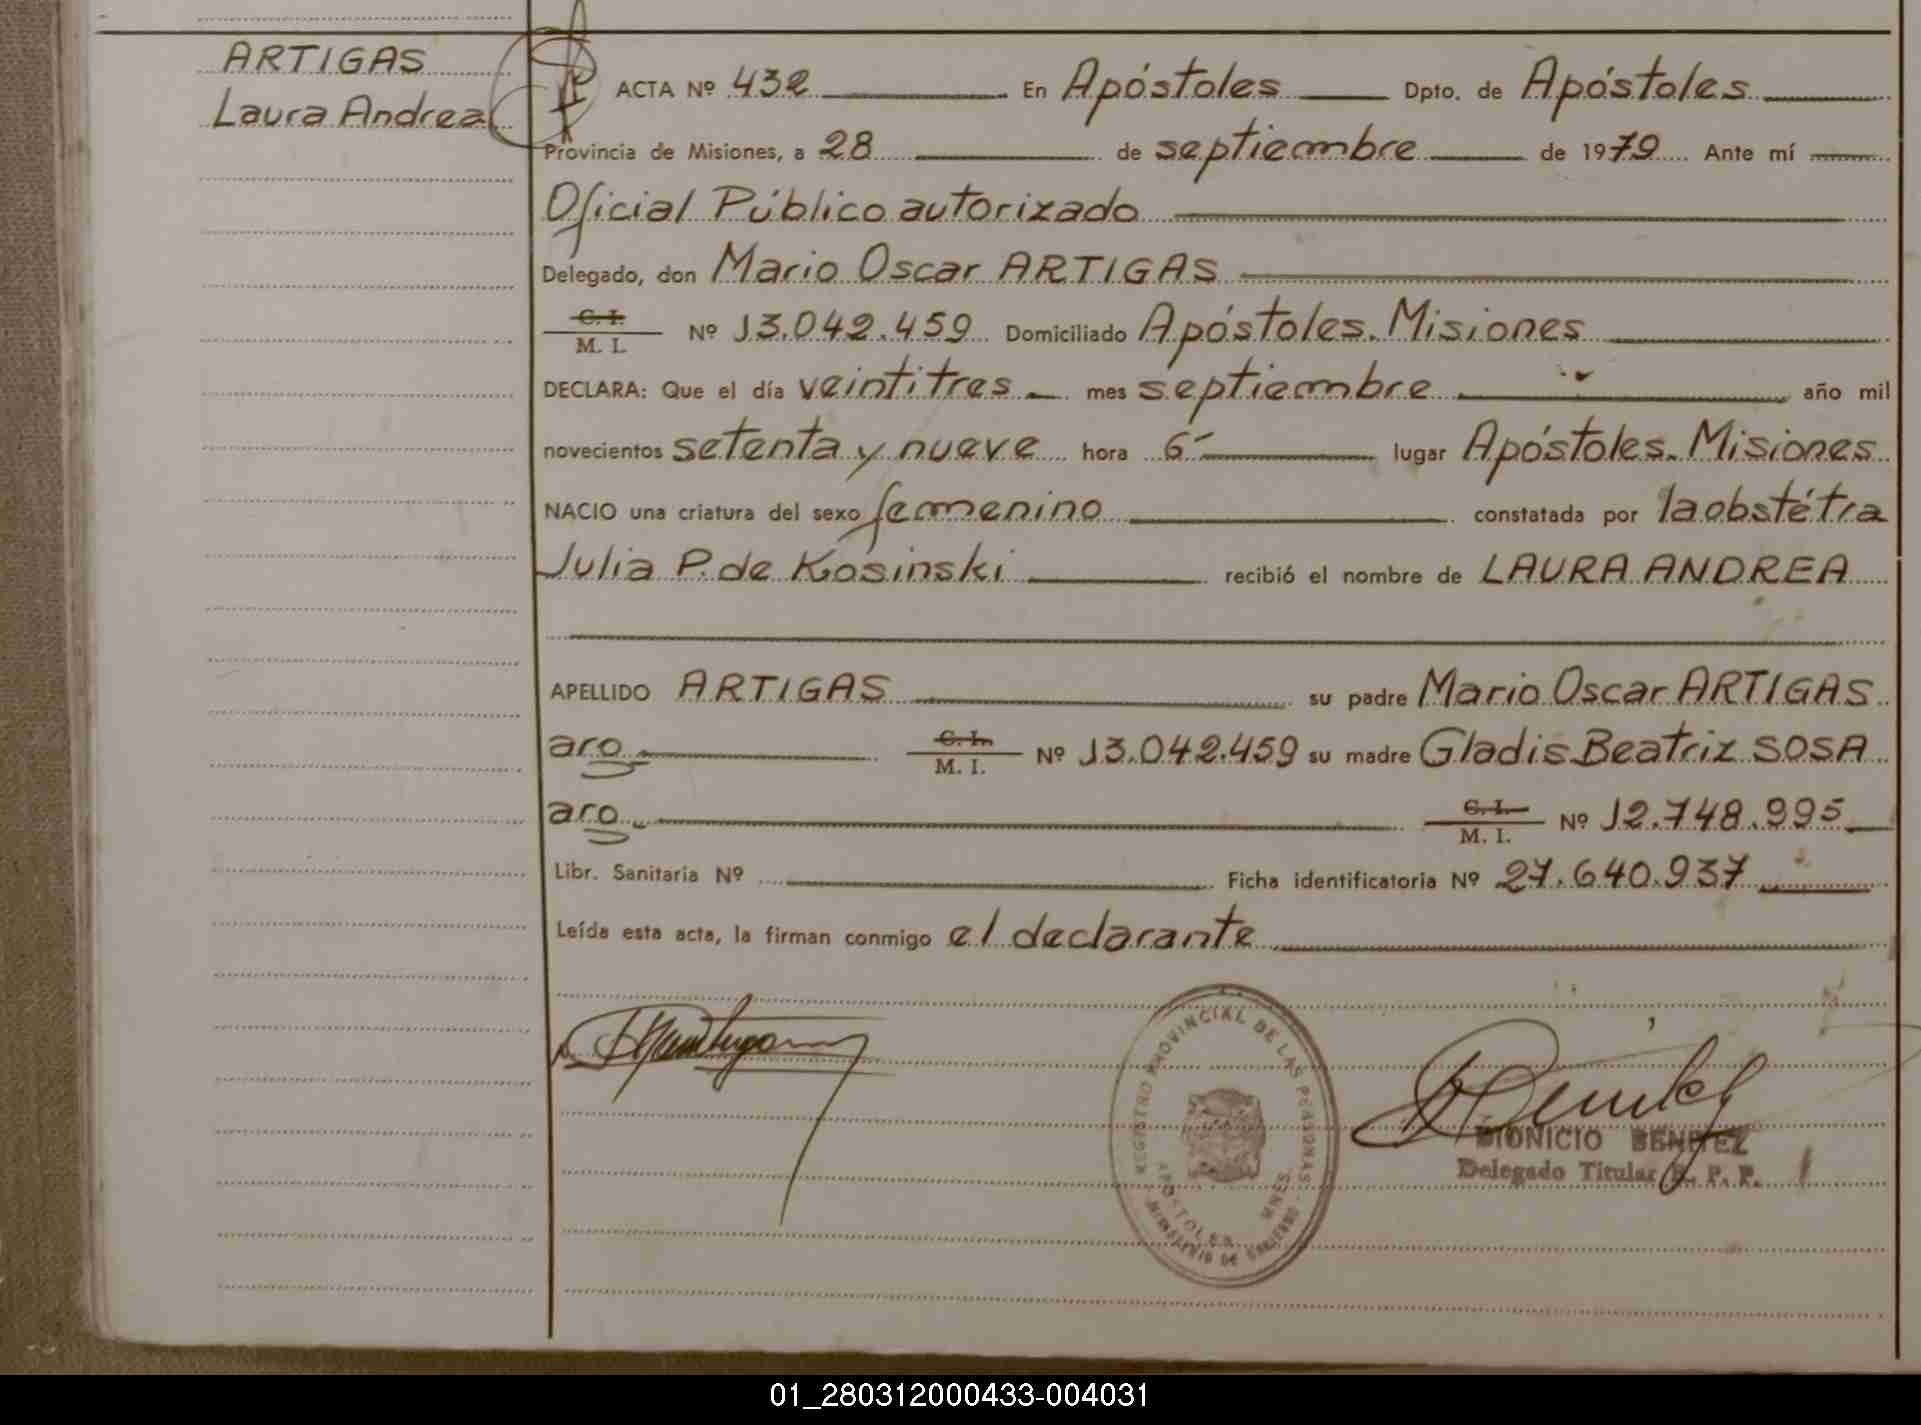 ARTIGAS
Laura Andrea
ACTA Nº 432 En Apóstoles Dpto. de Apóstoles
Provincia de Misiones, a 28 de septiembre de 1979 Ante mí
Oficial Público autorizado
Delegado, don Mario Oscar ARTIGAS
C. I.
M. I. Nº 13.042.459 Domiciliado Apóstoles. Misiones
DECLARA: Que el día veintitres mes septiembre año mil
novecientos setenta y nueve hora 6 lugar Apóstoles. Misiones
NACIO una criatura del sexo femenino constatada por la obstétra
Julia P. de Kosinski recibió el nombre de LAURA ANDREA
APELLIDO ARTIGAS su padre Mario Oscar ARTIGAS
aro C. I.
M. I. Nº 13.042.459 su madre Gladis Beatriz SOSA
aro C. I.
M. I. Nº 12.748.995
Libr. Sanitaria Nº Ficha identificatoria Nº 27.640.937
Leída esta acta, la firman conmigo el declarante
REGISTRO PROVINCIAL DE LAS PERSONAS
APOSTOLES MNES.
MINISTERIO DE GOBIERNO
DIONICIO BENITEZ
Delegado Titular R. P. P.
01_280312000433-004031